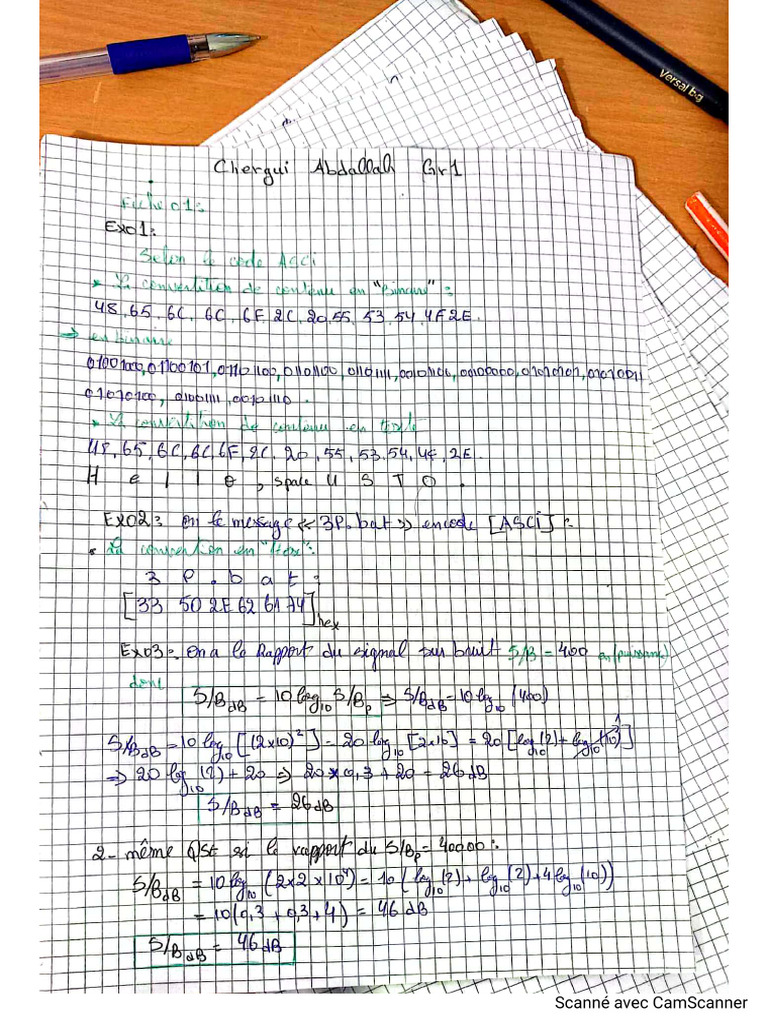 Versal b.g
Chergui Abdallah Gr1
Fiche 01:
Exo1:
Selon le code ASCi
* La convertition de contenu en "Binaire" :
48, 65, 6C, 6C, 6F, 2C, 20, 55, 53, 54, 4F 2E.
→ en binaire
01001000, 01100101, 01101100, 01101100, 01101111, 00101100, 00100000, 01010101, 01010011
01010100, 01001111, 00101110.
* La convertition de contenu en texte
48, 65, 6C, 6C, 6F, 2C, 20, 55, 53, 54, 4F, 2E.
H e l l o , space U S T O .
Exo2: on le message « 3P.bat » encode [ASCi] :
• La convertion en "Hex":
3 P . b a t :
[33 50 2E 62 61 74]hex
Exo3: On a le Rapport du signal sur bruit S/B = 400 en (puissance)
donc
S/BdB = 10 log10 S/Bp ⇒ S/BdB = 10 log10 (400)
S/BdB = 10 log10 [(2x10)²] = 20 log10 [2x10] = 20 [log10(2) + log10(10)]
⇒ 20 log10(2) + 20 ⇒ 20 x 0,3 + 20 = 26 dB
S/BdB = 26 dB
2- même QSt si le rapport du S/Bp = 40000 :
S/BdB = 10 log10 (2x2x10⁴) = 10 (log10(2) + log10(2) + 4 log10(10))
= 10(0,3 + 0,3 + 4) = 46 dB
S/BdB = 46 dB
Scanné avec CamScanner